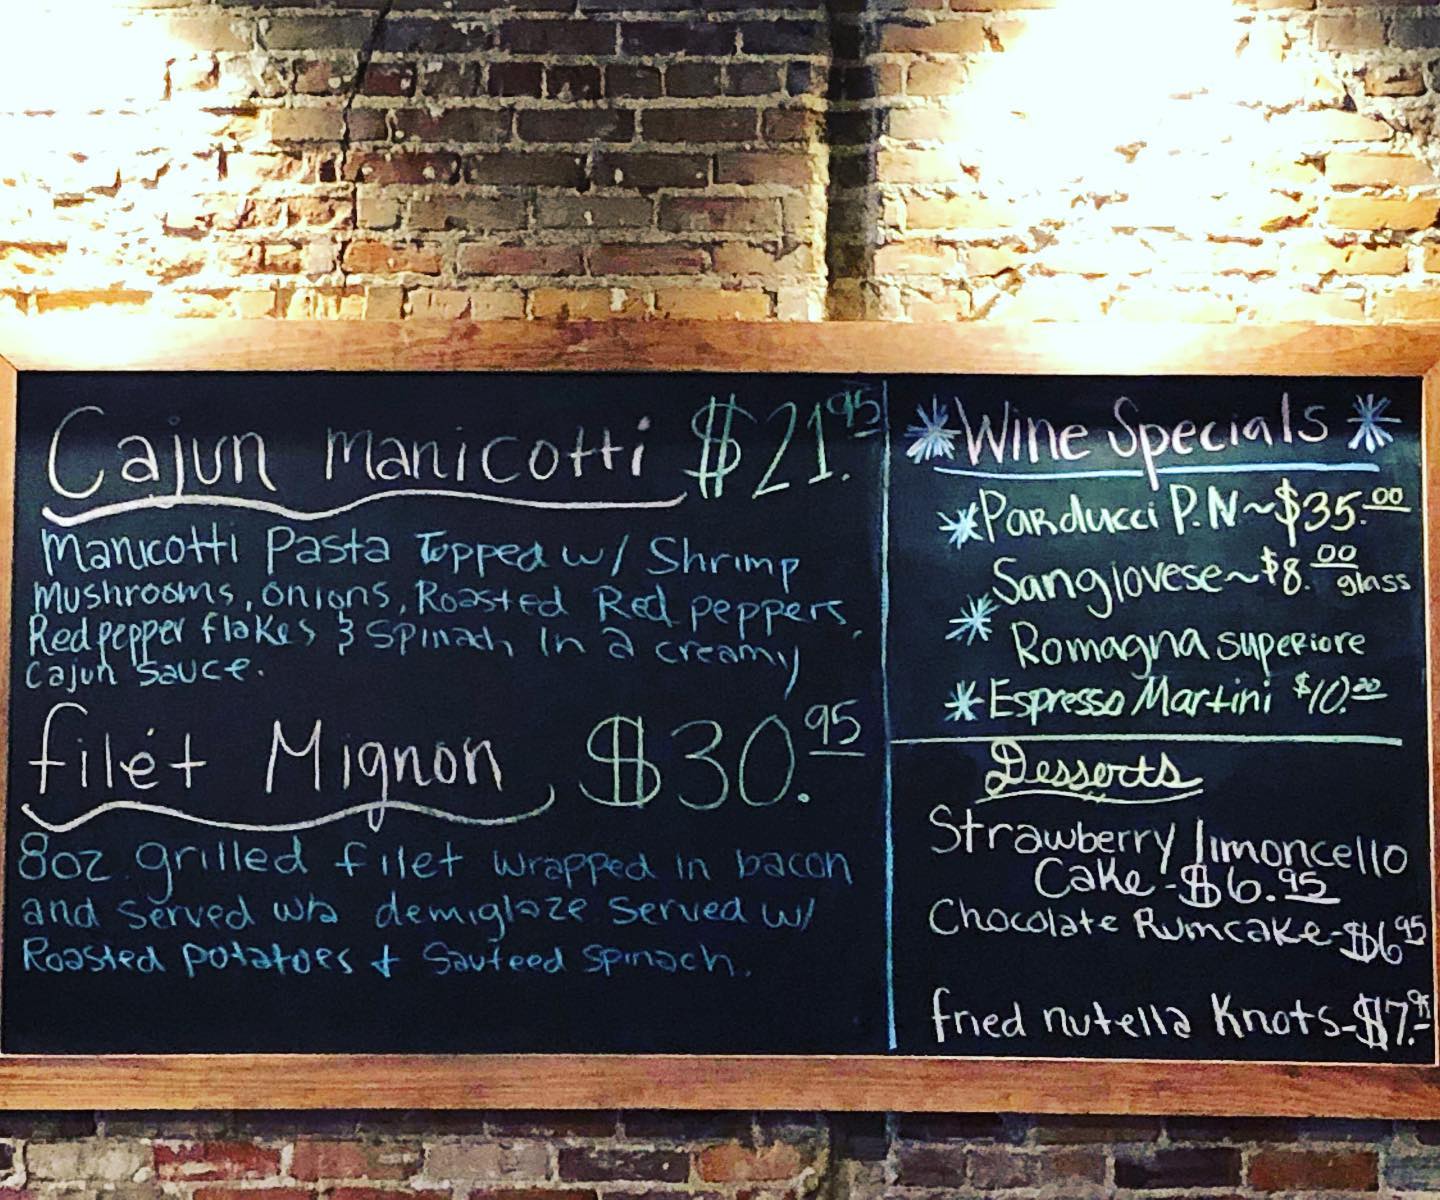 Cajun Manicotti $21.95
Manicotti Pasta Topped w/ Shrimp
Mushrooms, onions, Roasted Red peppers,
Red pepper flakes & Spinach In a creamy
Cajun Sauce.
filét Mignon $30.95
8oz. grilled filet wrapped in bacon
and served w/a demiglaze served w/
Roasted potatoes + Sauteed spinach.
Wine Specials
Parducci P.N ~ $35.00
Sangiovese ~ $8.00 glass
Romagna superiore
Espresso Martini $10.00
Desserts
Strawberry limoncello
Cake - $6.95
Chocolate Rumcake - $6.95
fried nutella Knots - $7.95